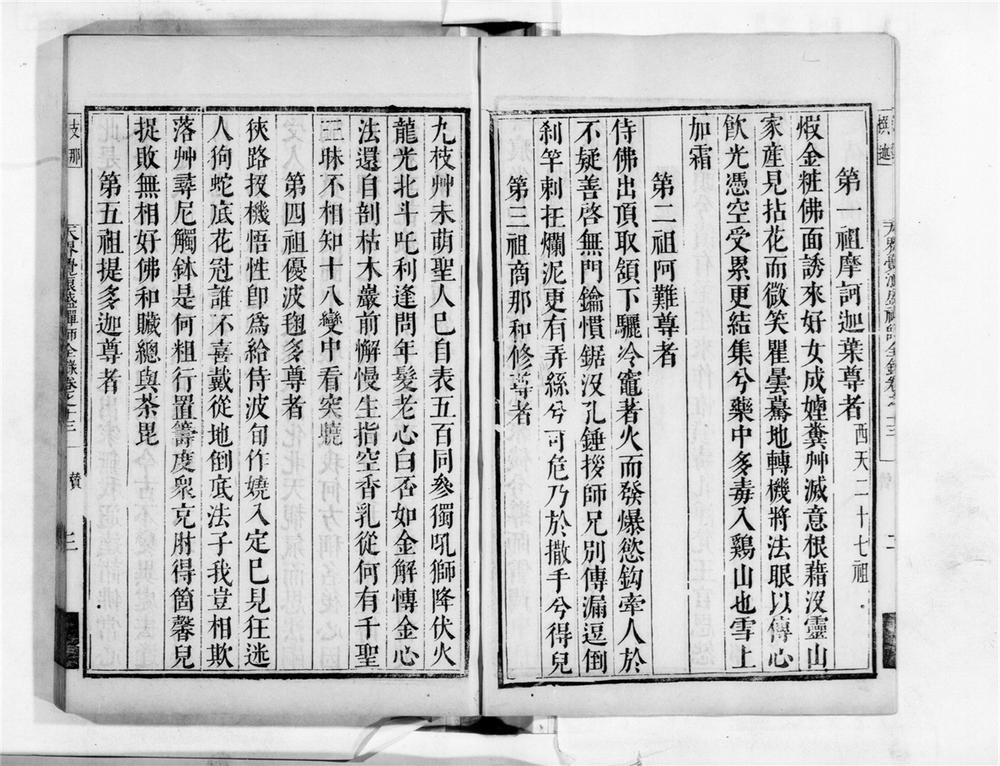 第一祖摩訶迦葉尊者 西天二十七祖
煆金粧佛面誘來好女成媓糞艸滅意根藉沒靈山
家産見拈花而微笑瞿曇驀地轉機將法眼以傳心
飲光憑空受累更結集兮藥中多毒入鷄山也雪上
加霜
第二祖阿難尊者
侍佛出頂取領下驪冷竈著火而發爆慾鈎牽人於
不疑善啓無門鑰慣鋸沒孔錘拶師兄別傳漏逗倒
刹竿刺在爛泥更有弄絲兮可危乃於撒手兮得兒
第三祖商那和修尊者
九枝艸未萌聖人已自表五百同參獨吼獅降伏火
龍光北斗吒利逢問年髮老心白否如金解慱金心
法還自剖枯木巖前懈慢生指空香乳從何有千聖
三昧不相知十八變中看突蟯
第四祖優波毱多尊者
狹路投機悟性卽爲給侍波旬作嬈入定已見狂迷
人狗蛇底花冠誰不喜戴從地倒底法子我豈相欺
落艸尋尼觸鉢是何粗行置籌度衆克肘得箇馨兒
捉敗無相好佛和贓總與茶毘
第五祖提多迦尊者
支那
天界覺浪盛禪師全錄卷之十三
贊